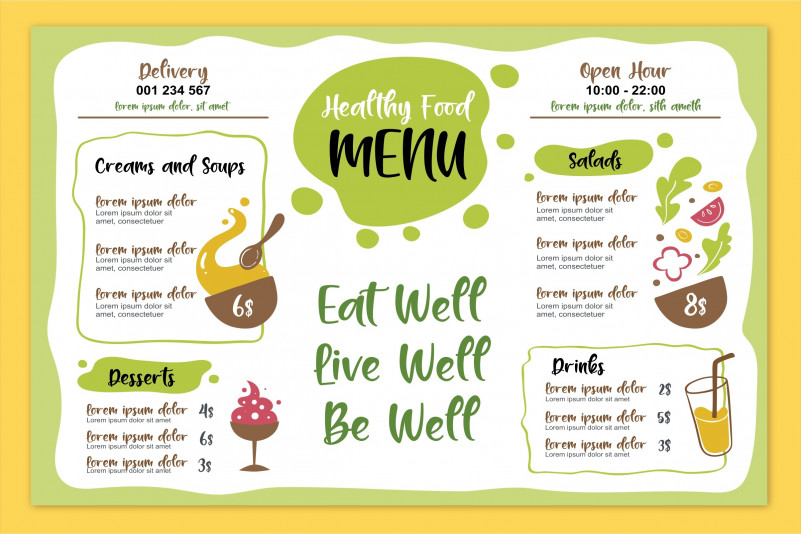 Delivery
001 234 567
lorem ipsum dolor, sit amet
Creams and Soups
lorem ipsum dolor
Lorem ipsum dolor sit
amet, consectetuer
lorem ipsum dolor
Lorem ipsum dolor sit
amet, consectetuer
lorem ipsum dolor
Lorem ipsum dolor sit
amet, consectetuer
6$
Desserts
lorem ipsum dolor 4$
Lorem ipsum dolor sit amet
lorem ipsum dolor 6$
Lorem ipsum dolor sit amet
lorem ipsum dolor 3$
Lorem ipsum dolor sit amet
Healthy Food
MENU
Eat Well
Live Well
Be Well
Open Hour
10:00 - 22:00
lorem ipsum dolor, sith ameth
Salads
lorem ipsum dolor
Lorem ipsum dolor sit
amet, consectetuer
lorem ipsum dolor
Lorem ipsum dolor sit
amet, consectetuer
lorem ipsum dolor
Lorem ipsum dolor sit
amet, consectetuer
8$
Drinks
lorem ipsum dolor 2$
Lorem ipsum dolor sit amet
lorem ipsum dolor 5$
Lorem ipsum dolor sit amet
lorem ipsum dolor 3$
Lorem ipsum dolor sit amet